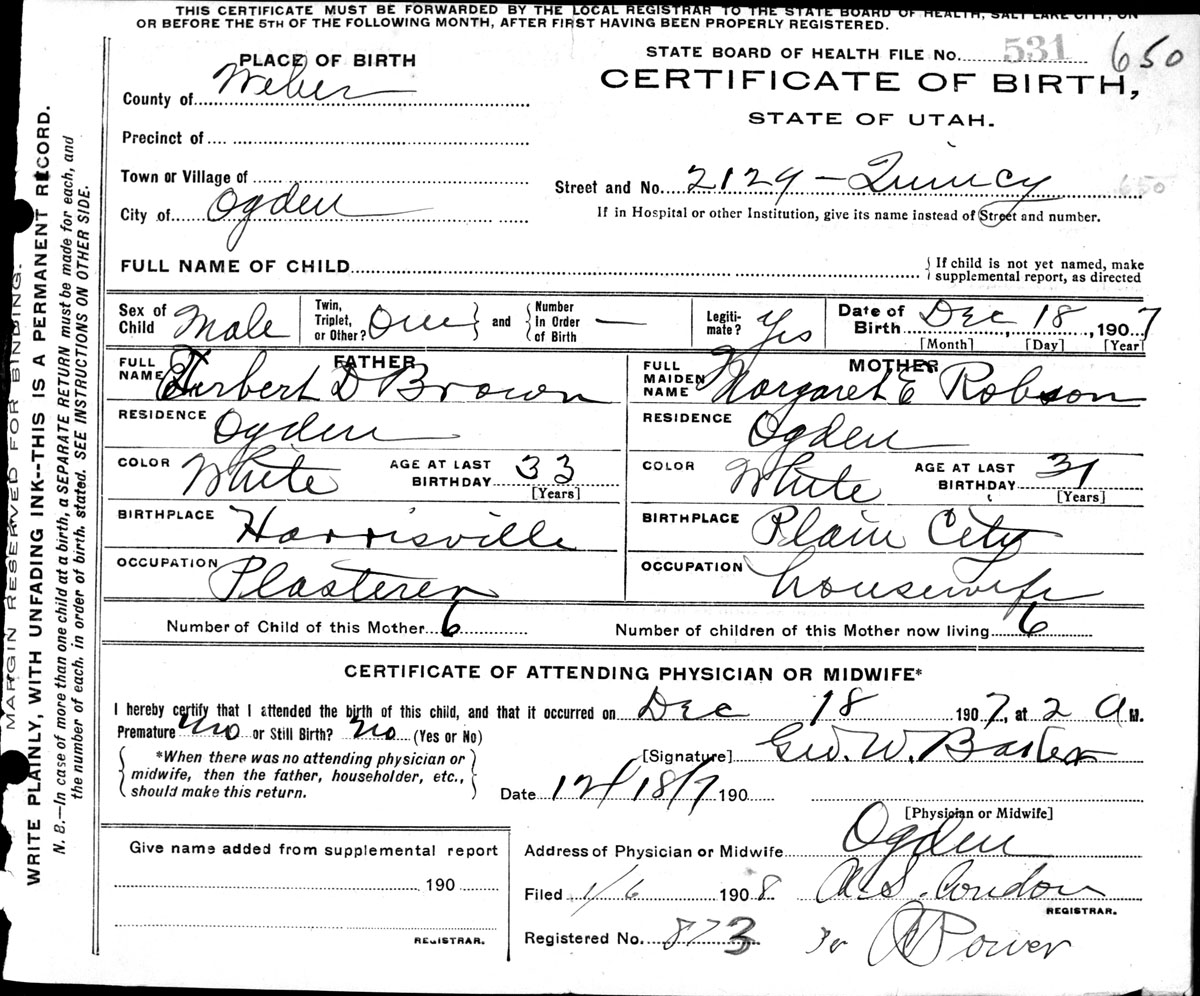 THIS CERTIFICATE MUST BE FORWARDED BY THE LOCAL REGISTRAR TO THE STATE BOARD OF HEALTH, SALT LAKE CITY, ON
OR BEFORE THE 5TH OF THE FOLLOWING MONTH, AFTER FIRST HAVING BEEN PROPERLY REGISTERED.
STATE BOARD OF HEALTH FILE No. 531 650
PLACE OF BIRTH
County of Weber
CERTIFICATE OF BIRTH,
STATE OF UTAH.
Precinct of
Town or Village of
City of Ogden
Street and No. 2129 - Quincy 650
If in Hospital or other Institution, give its name instead of Street and number.
FULL NAME OF CHILD
{ If child is not yet named, make supplemental report, as directed
Sex of Child Male
Twin, Triplet, or Other? One } and { Number In Order of Birth —
Legiti-mate? Yes
Date of Birth Dec 18, 1907
[Month] [Day] [Year]
FATHER
FULL NAME Herbert D Brown
MOTHER
FULL MAIDEN NAME Margaret E Robson
RESIDENCE Ogden
RESIDENCE Ogden
COLOR White AGE AT LAST BIRTHDAY 33 [Years]
COLOR White AGE AT LAST BIRTHDAY 31 [Years]
BIRTHPLACE Harrisville
BIRTHPLACE Plain City
OCCUPATION Plasterer
OCCUPATION housewife
Number of Child of this Mother 6
Number of children of this Mother now living 6
CERTIFICATE OF ATTENDING PHYSICIAN OR MIDWIFE*
I hereby certify that I attended the birth of this child, and that it occurred on Dec 18 1907, at 2 A M.
Premature No or Still Birth? No (Yes or No)
{ *When there was no attending physician or midwife, then the father, householder, etc., should make this return. }
[Signature] Geo. W. Baxter
Date 12/18/7 190
[Physician or Midwife]
Give name added from supplemental report
190
REGISTRAR.
Address of Physician or Midwife Ogden
Filed 1/6 1908 A. S. Condon
REGISTRAR.
Registered No. 873 Per Power
MARGIN RESERVED FOR BINDING.
WRITE PLAINLY, WITH UNFADING INK--THIS IS A PERMANENT RECORD.
N. B.—In case of more than one child at a birth, a SEPARATE RETURN must be made for each, and
the number of each, in order of birth, stated. SEE INSTRUCTIONS ON OTHER SIDE.